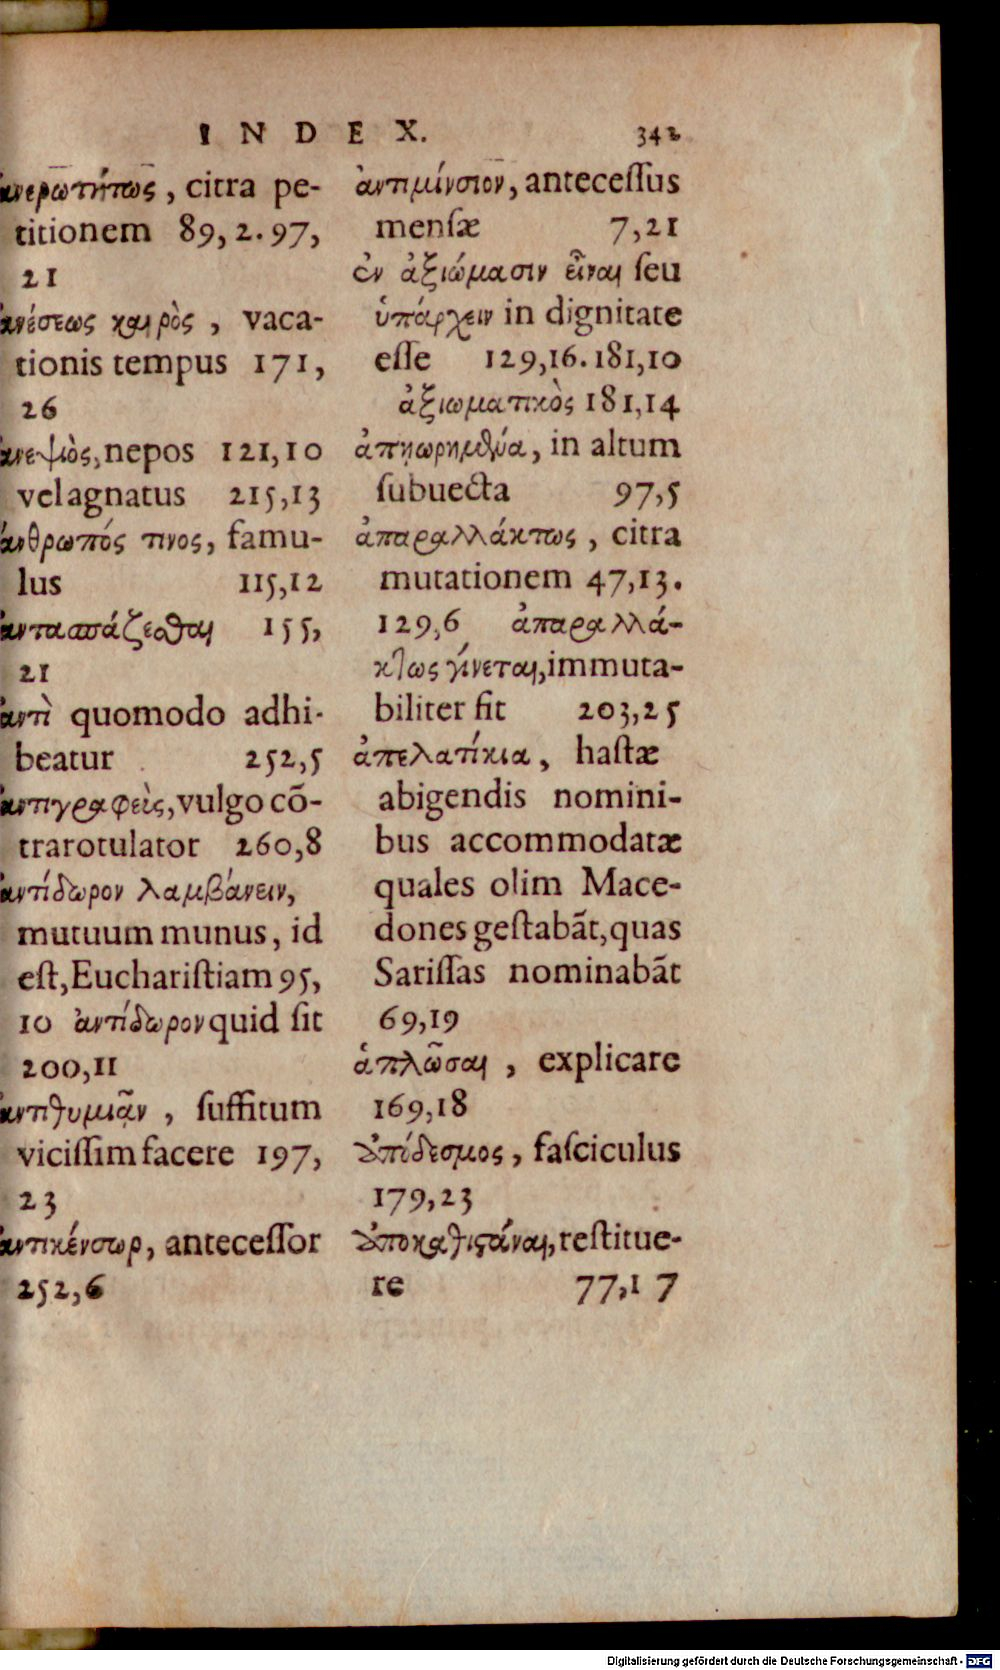 INDEX. 342
ἀνερωτήτως, citra pe-
titionem 89, 2. 97,
21
ἀνέσεως καιρὸς, vaca-
tionis tempus 171,
26
ἀνεψιὸς, nepos 121,10
vel agnatus 215,13
ἄνθρωπός τινος, famu-
lus 115,12
ἀντασπάζεσθαι 155,
21
ἀντὶ quomodo adhi-
beatur 252,5
ἀντιγραφεὶς, vulgo cõ-
trarotulator 260,8
ἀντίδωρον λαμβάνειν,
mutuum munus, id
est, Euchariſtiam 95,
10 ἀντίδωρον quid ſit
200,11
ἀντιθυμιᾶν, ſuffitum
viciſſim facere 197,
23
ἀντικένσωρ, anteceſſor
252,6
ἀντιμίνσιον, anteceſſus
menſæ 7,21
ἐν ἀξιώμασιν εἶναι ſeu
ὑπάρχειν in dignitate
eſſe 129,16. 181,10
ἀξιωματικὸς 181,14
ἀπῃωρημένα, in altum
ſubuecta 97,5
ἀπαραλλάκτως, citra
mutationem 47,13.
129,6 ἀπαραλλά-
κτως γίνεται, immuta-
biliter fit 203,25
ἀπελατίκια, haſtæ
abigendis nomini-
bus accommodatæ
quales olim Mace-
dones geſtabãt, quas
Sariſſas nominabãt
69,19
ἁπλῶσαι, explicare
169,18
ἀπόδεσμος, faſciculus
179,23
ἀποκαθιστάναι, reſtitue-
re 77,17
Digitalisierung gefördert durch die Deutsche Forschungsgemeinschaft - DFG